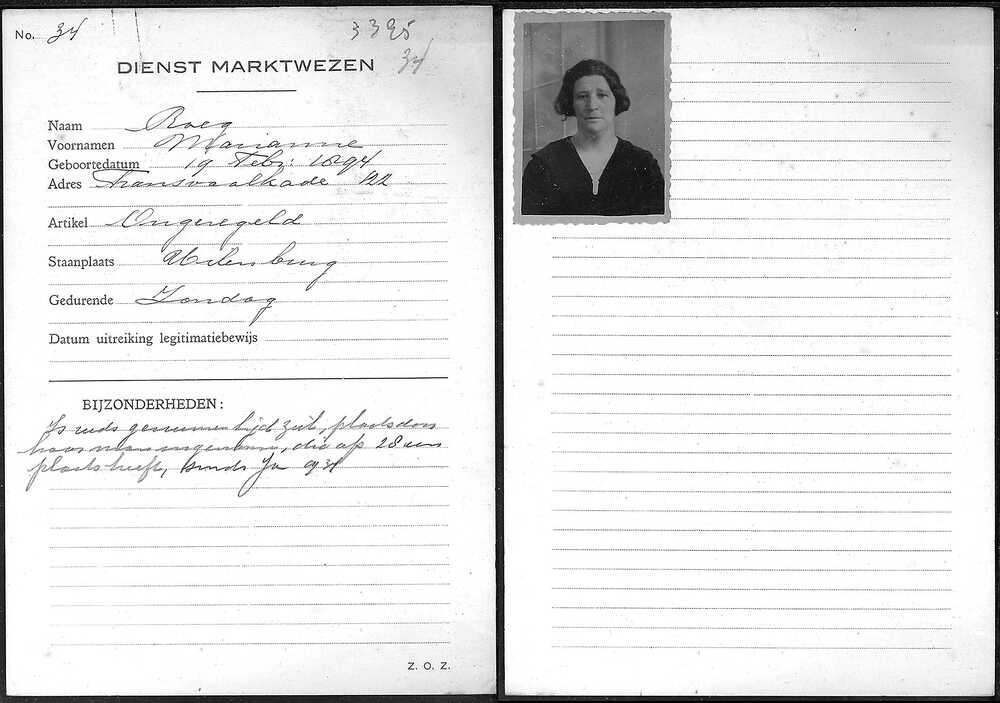 No. 34
3395
34
DIENST MARKTWEZEN
Naam Roeg
Voornamen Marianne
Geboortedatum 19 Febr: 1894
Adres Transvaalkade 122
Artikel Ongeregeld
Staanplaats Uilenburg
Gedurende Zondag
Datum uitreiking legitimatiebewijs
BIJZONDERHEDEN:
Is reeds geruimen tijd ziek, plaats door
haar man ingenomen, die op 28 een
plaats heeft, sinds
Z. O. Z.